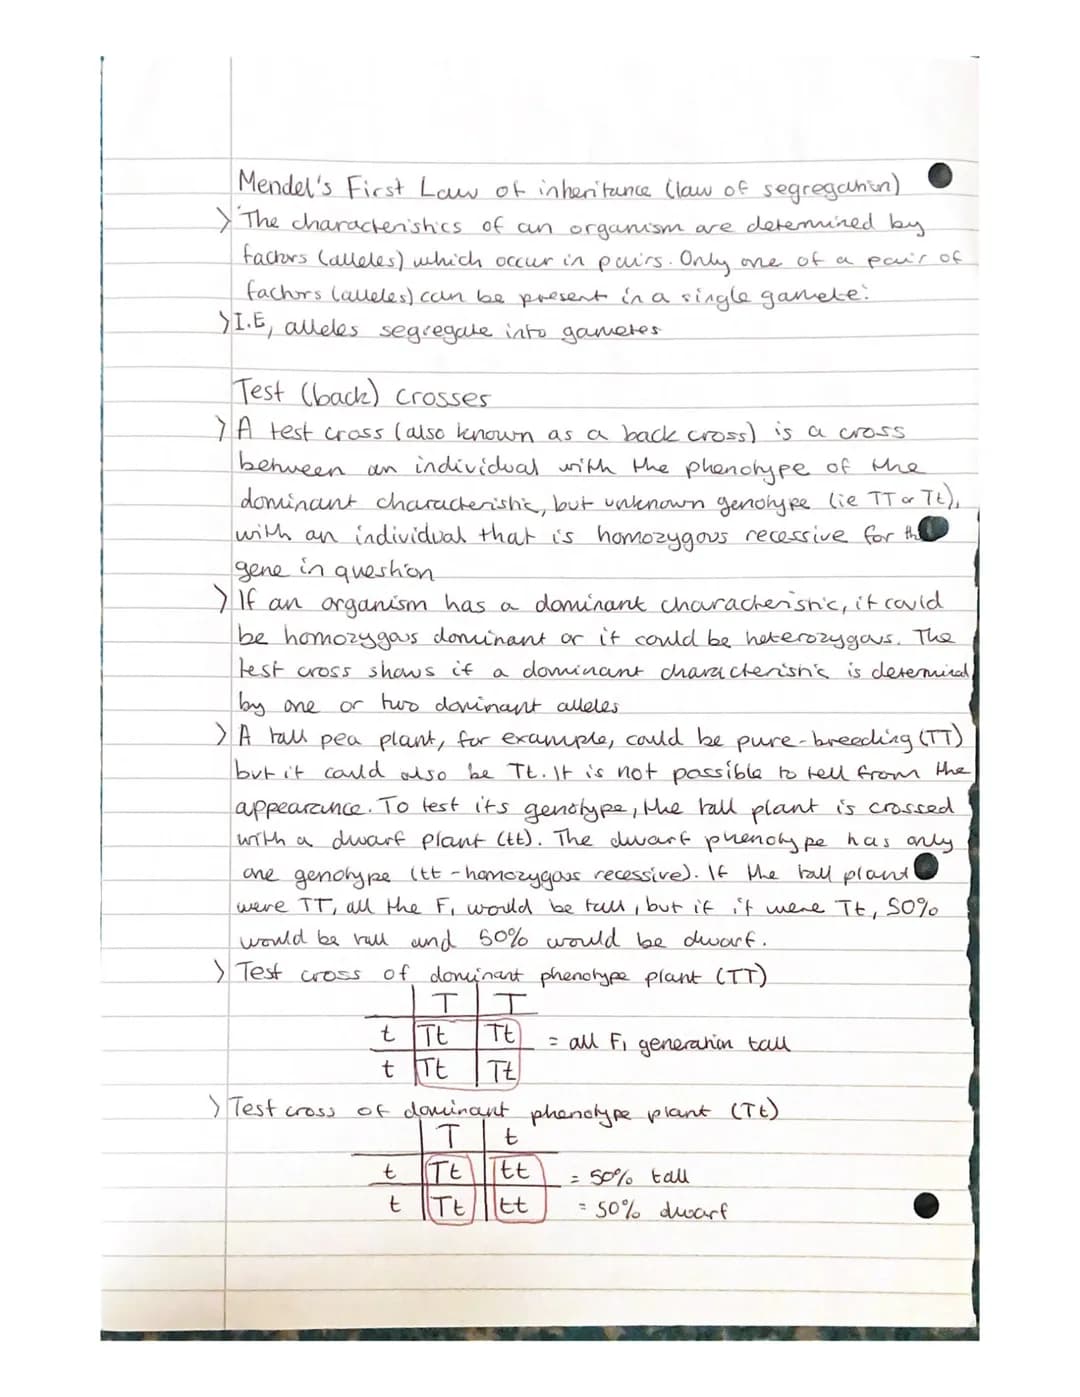 Mendel's First Law of inheritance (law of segregation)
> "The characteristics of an organism are determined by
factors (alleles) which occur in pairs. Only one of a pair of
factors (alleles) can be present in a single gamete."
> I.E, alleles segregate into gametes
Test (back) crosses
> A test cross (also known as a back cross) is a cross
between an individual with the phenotype of the
dominant characteristic, but unknown genotype (ie TT or Tt),
with an individual that is homozygous recessive for the
gene in question
> If an organism has a dominant characteristic, it could
be homozygous dominant or it could be heterozygous. The
test cross shows if a dominant characteristic is determined
by one or two dominant alleles
> A tall pea plant, for example, could be pure-breeding (TT)
but it could also be Tt. It is not possible to tell from the
appearance. To test its genotype, the tall plant is crossed
with a dwarf plant (tt). The dwarf phenotype has only
one genotype (tt - homozygous recessive). If the tall plant
were TT, all the F₁ would be tall, but if it were Tt, 50%
would be tall and 50% would be dwarf.
> Test cross of dominant phenotype plant (TT)
T T
t Tt Tt = all F₁ generation tall
t Tt Tt
> Test cross of dominant phenotype plant (Tt)
T t
t Tt tt = 50% tall
t Tt tt = 50% dwarf